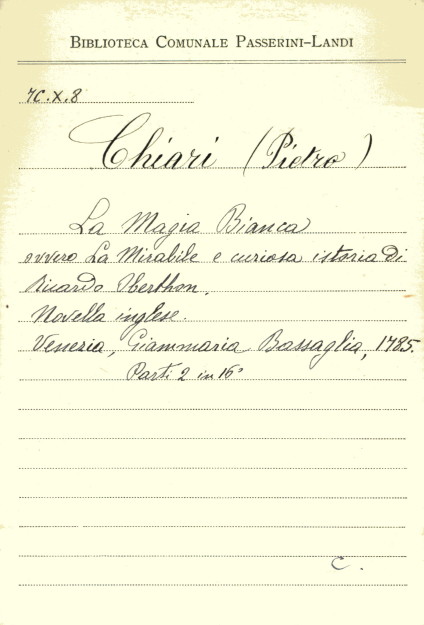 BIBLIOTECA COMUNALE PASSERINI-LANDI
7C.X.8
Chiari (Pietro)
La Magia Bianca
ovvero La Mirabile e curiosa istoria di
Ricardo Oberthon.
Novella inglese.
Venezia, Giammaria Bassaglia, 1785.
Parti 2 in 16°
C.